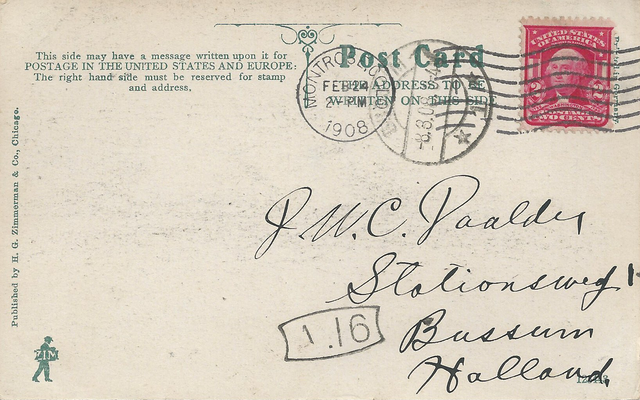 This side may have a message written upon it for
POSTAGE IN THE UNITED STATES AND EUROPE:
The right hand side must be reserved for stamp
and address.
Post Card
THE ADDRESS TO BE
WRITTEN ON THIS SIDE
FEB 24
1908
UNITED STATES
OF AMERICA
POSTAGE
TWO CENTS
J. W. C. Daalder
Stationsweg 1
Bussum
Holland.
1.16
ZIM
Published by H. G. Zimmerman & Co., Chicago.